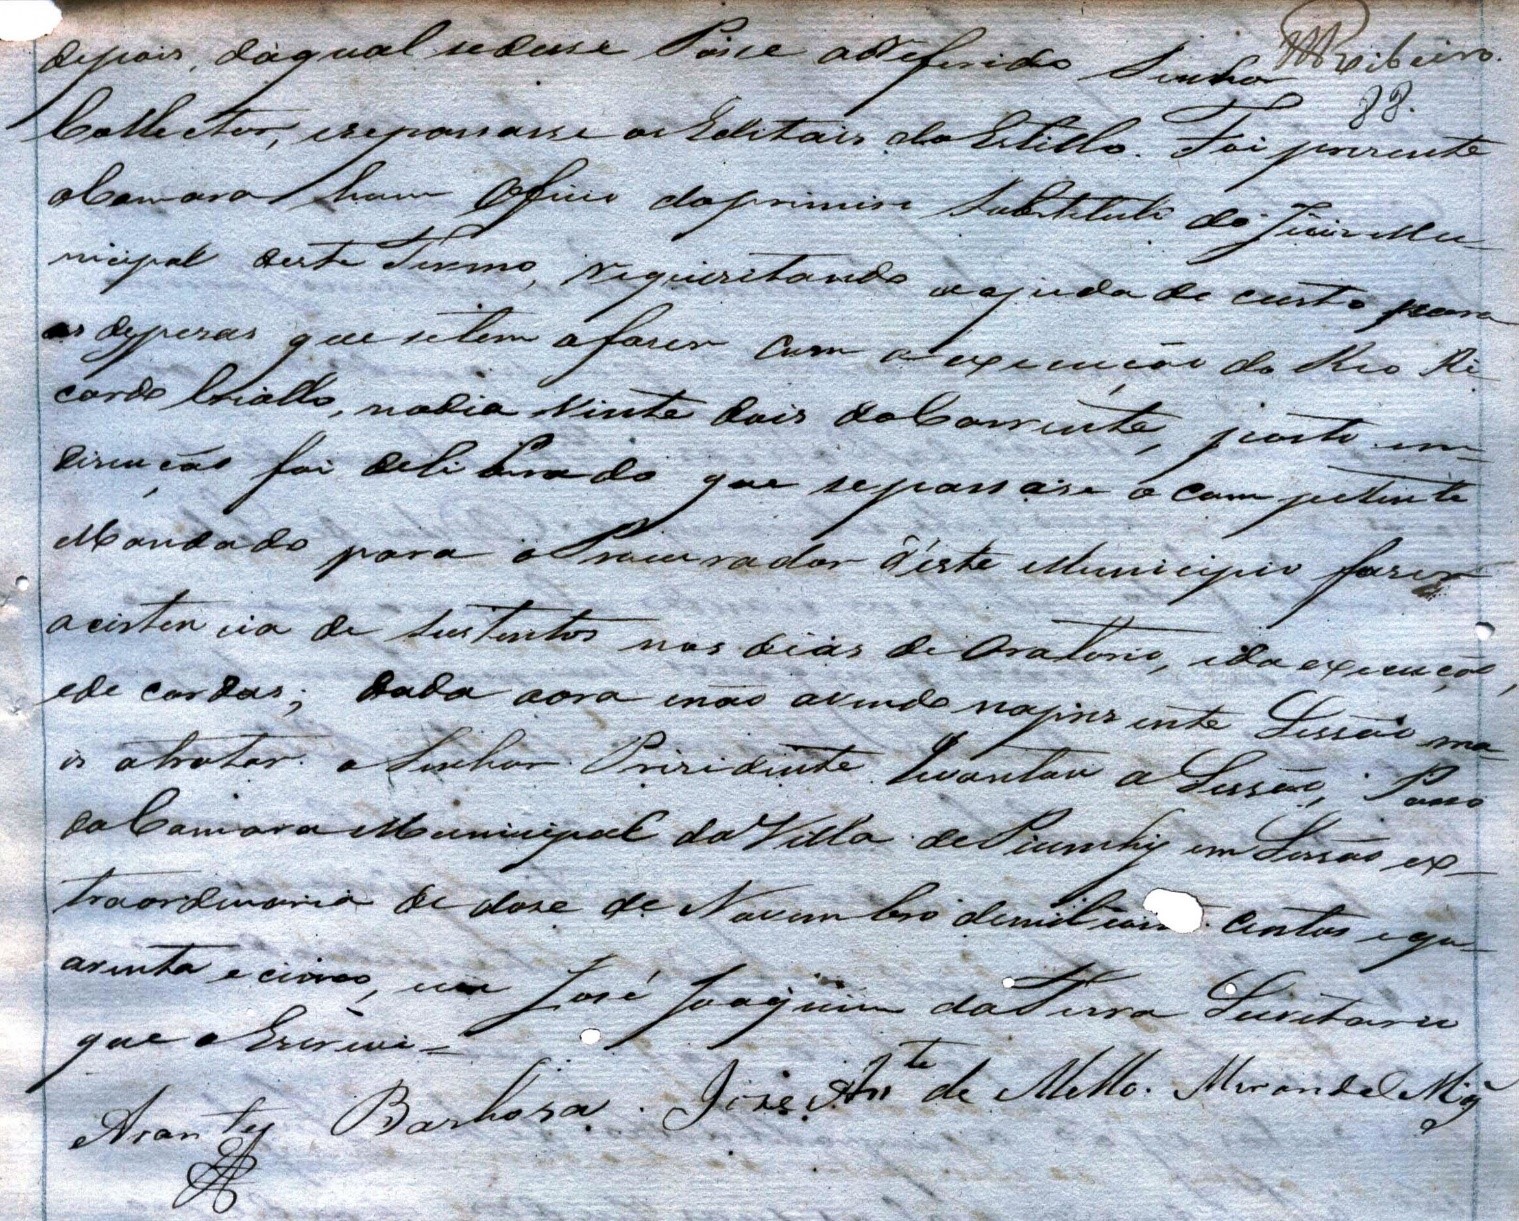 Ribeiro.
88.
depois, daqual sedesse Posse aoreferido Senhor
Collector, esepassasse os Editais do Estillo. Foi prezente
aCamara hum Oficio doprimeiro Substituto do Juis Mu=
nicipal deste Termo, requisitando a ajuda de custo para
as despezas que setem afaser com a execução do Reo Ri=
cardo Criollo, nodia Vinte dois doCorrente, posto em=
discução foi deliberado que sepassase o competente
Mandado para o Procurador d'este Municipio faser
acistencia de sustentos nos dias de Oratorio, eda execução,
ede cordas; dada aora enão avendo naprezente Sessão ma=
is atratar o Senhor Prizidente levantou a Sessão, Paço
daCamara Municipal da Villa de Piumhy em Sessão ex=
traordinaria de dose de Novembro demil oito centos equ=
arenta e cinco, eu José Joaquim da Terra Secretario
que o Escrevi=
Arantes Barboza. José Ante de Mello. Miranda